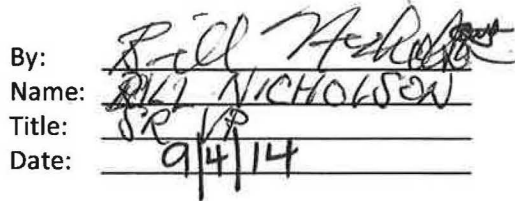 By: Bill Nicholson
Name: BILL NICHOLSON
Title: SR VP
Date: 9/4/14